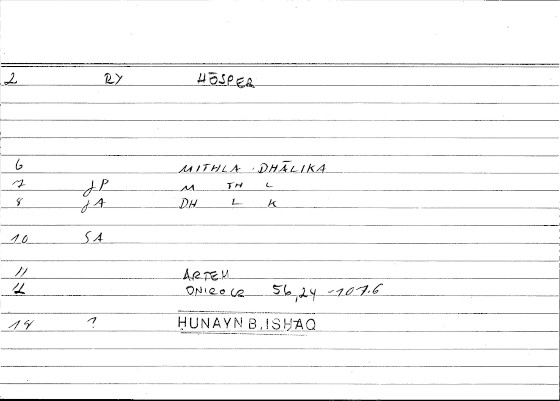 2 RY HŌSPER
6 MITHLA DHĀLIKA
7 JP M TH L
8 JA DH L K
10 SA
11 ARTEM
12 ONIROCR 56,24 - 107.6
14 ? HUNAYN B. ISHAQ